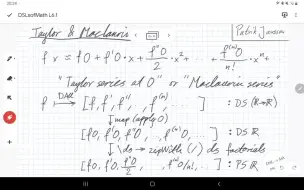 20:24
DSLsofMath L6.1
Taylor & Maclaurin
Patrik Jansson
f x = f 0 + f' 0 · x + f'' 0 / 2 · x² + ... + f⁽ⁿ⁾ 0 / n! · xⁿ + ...
"Taylor series at 0" or "Maclaurin series"
f ⟼ [f, f', f'', ... f⁽ⁿ⁾, ... ] : DS (ℝ→ℝ)
↓ map (apply 0)
[f 0, f' 0, f'' 0, ... f⁽ⁿ⁾ 0, ... ] : DS ℝ
↓ \ds → zipWith (/) ds factorials
[f 0, f' 0, f'' 0 / 2, ... f⁽ⁿ⁾ 0 / n!, ... ] : PS ℝ